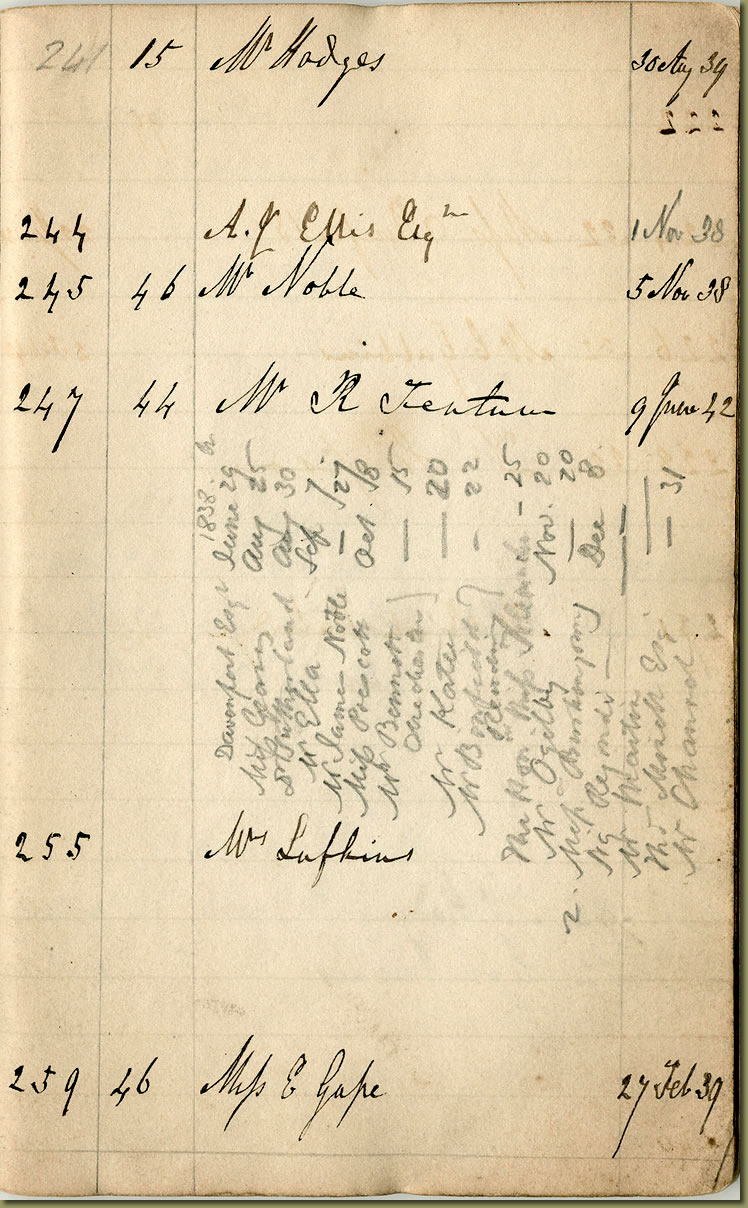 241 15 Mr Hodges 30 Aug 39
222
244 A. J Ellis Esqre 1 Nov 38
245 46 Mr Noble 5 Nov 38
247 44 Mr R Fentum 9 June 42
1838
Davenport Esqr June 29
Miss Geary Aug 25
Sutherland Aug 30
Mr Ella Sep 7
Mr James Noble — 27
Miss Prescott Oct 18
Mr Bennett — 15
Mr Kater — 20
Mr — 22
Reading
The Hon Miss — 25
Mr Ogilby Nov. 20
2. Miss — 20
Dec 8
Mr Martin —
Esq —
Mr — 31
255 Mrs Lufkins
259 46 Miss E Gape 27 Feb 39